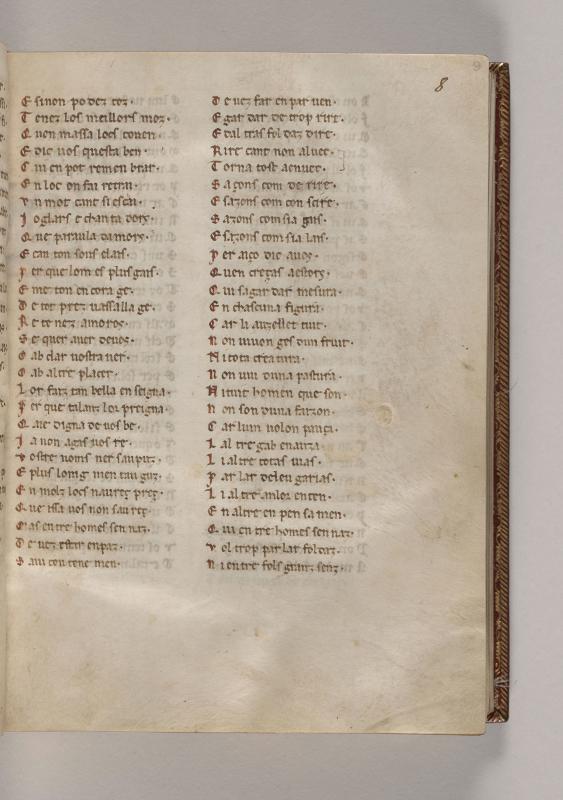 8
E sinon podez toz.
T enez los meillors moz.
Q uon massa locs couen.
E dic uos questa ben.
C ui en pot remenbrar.
E n loc on fai retrai.
v n mot cant si escai.
J oglars e chanta dorx.
Q ue paraula damorx.
E can ton sons clais.
p er que lom es plus gais.
E me ton encora ge.
D e tot prez uassallage.
R etenez amorex.
S e quer auer deuos.
O ab clar uostra uer.
O ab altre placer.
L or faiz tan bella enseigna.
p er que talanz lor preigna.
Q ale digna de uos be.
J a non agas uos re.
v ostre noms ner saupuz.
E plus loing men tauguz.
E n molz locs naurex prex.
Q ue issa uos non saurex.
Q as entre homes sennaz.
D e uez estar enpaz.
S aui contenemen.
D e uez far en paruen.
E gardar de trop rire.
E dal tras fol daz dire.
R ire cant non aluec.
T orna tost aenuec.
S azons com de rire.
E sazons com consire.
S azons com sia gais.
E sazons com sia lais.
p er aizo dic auos.
Q uen crezas aestors.
Q ui sagardar mesura.
E n chascuna figura.
C ar li auzellet tuit.
n on uiuon ges dun fruit.
N i tota creatura.
n on uiu duna pastura.
N i tuit homen que son.
n on son duna faizon.
C ar luin uolon panca.
L altre gab enanza.
L i altre cotas uias.
p arlar deleugarias.
L i altre anloi enten.
E n altre en pensamen.
Q ui entre homes sennaz.
v ol trop parlar foldaz.
n i entre fols granz senz.